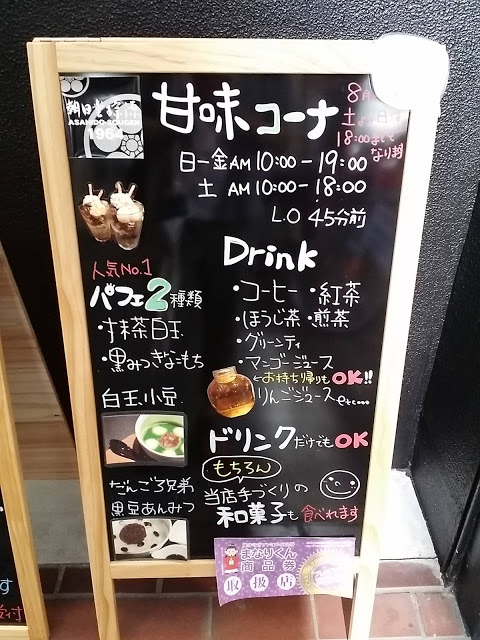 朝日堂
ASAHIDO SOUGEN
1964
甘味コーナ
8月
土
18:00まで
なります
日ー金 AM 10:00 - 19:00
土 AM 10:00 - 18:00
L.O 45分前
人気No.1
パフェ2種類
・抹茶白玉
・黒みつきなこもち
白玉小豆
だんご3兄弟
黒豆あんみつ
Drink
・コーヒー ・紅茶
・ほうじ茶 ・煎茶
・グリーンティ
・マンゴージュース
←お持ち帰りもOK!!
りんごジュース etc...
ドリンクだけでもOK
もちろん
当店手づくりの
和菓子も食べれます
まなりくん
商品券
取扱店
す